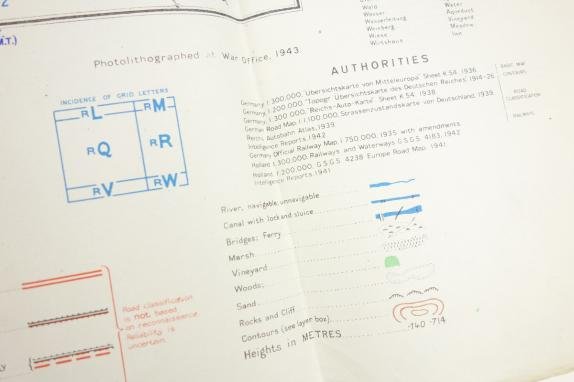 M.T.)
2
Photolithographed at War Office, 1943
INCIDENCE OF GRID LETTERS
RL
RM
RQ
RR
RV
RW
Wald
Wasser
Wasserleitung
Weinberg
Wiese
Wirtshaus
Water
Aqueduct
Vineyard
Meadow
Inn
AUTHORITIES
Germany 1:300,000. 'Übersichtskarte von Mitteleuropa' Sheet K.54. 1936
Germany 1:200,000. 'Topogr. Übersichtskarte des Deutschen Reiches' 1914-26
Germany 1:300,000. 'Reichs-Auto-Karte' Sheet K.54. 1938
German Road Map 1:1,100,000. Strassenzustandskarte von Deutschland. 1939
Reichs Autobahn Atlas, 1939
Intelligence Reports 1942
German Official Railway Map 1:750,000. 1935 with amendments
Holland 1:300,000. Railways and Waterways G.S.G.S. 4183, 1942
Holland 1:200,000. G.S.G.S. 4238 Europe Road Map. 1941
Intelligence Reports 1941
BASIC MAP
CONTOURS
ROAD
CLASSIFICATION
RAILWAYS
River, navigable, unnavigable
Canal with lock and sluice
Bridges: Ferry
Marsh
Vineyard
Woods:
Sand
Rocks and Cliff
Contours (see layer box)
Heights in METRES
·140 ·714
Road classification
is not based
on reconnaissance.
Reliability is
uncertain.